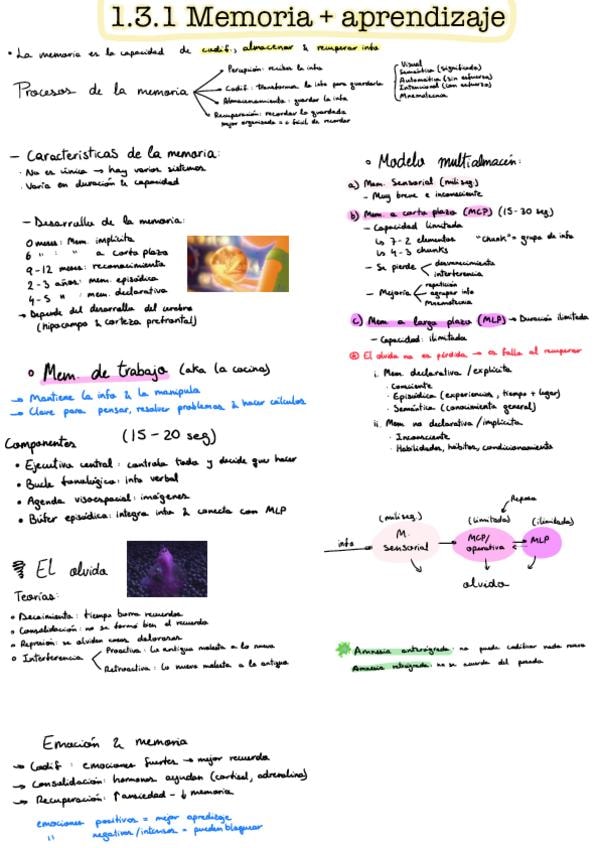 1.3.1 Memoria + aprendizaje
• La memoria es la capacidad de codif., almacenar & recuperar info
Procesos de la memoria
Percepción: recibes la info
Codif: transformas la info para guardarla
Almacenamiento: guardar la info
Recuperación: recordar lo guardado
mejor organizado = + fácil de recordar
Visual
Semántica (significado)
Automática (sin esfuerzo)
Intencional (con esfuerzo)
Mnemotecnia
– Características de la memoria:
· No es única → hay varios sistemas
· Varía en duración & capacidad
– Desarrollo de la memoria:
0 meses: Mem. implícita
6 " : " a corto plazo
9-12 meses: reconocimiento
2-3 años: mem. episódica
4-5 " : mem. declarativa
→ Depende del desarrollo del cerebro
(hipocampo & corteza prefrontal)
• Mem. de trabajo (aka la cocina)
→ Mantiene la info & la manipula
→ Clave para pensar, resolver problemas & hacer cálculos
Componentes (15-20 seg)
• Ejecutivo central: controla todo y decide que hacer
• Bucle fonológico: info verbal
• Agenda visoespacial: imágenes
• Búfer episódico: integra info & conecta con MLP
El olvido
Teorías:
• Decaimiento: tiempo borra recuerdos
• Consolidación: no se formó bien el recuerdo
• Represión: se olvidan cosas dolorosas
• Interferencia
Proactiva: lo antiguo molesta a lo nuevo
Retroactiva: lo nuevo molesta a lo antiguo
Emoción & memoria
→ Codif: emociones fuertes → mejor recuerdo
→ Consolidación: hormonas ayudan (cortisol, adrenalina)
→ Recuperación: ↑ansiedad – ↓ memoria
emociones positivas = mejor aprendizaje
" negativas/intensas = pueden bloquear
• Modelo multialmacén:
a) Mem. Sensorial (miliseg.)
– Muy breve e inconsciente
b) Mem. a corto plazo (MCP) (15-30 seg)
– Capacidad limitada
↳ 7-2 elementos "Chunk" = grupo de info
↳ 4-3 chunks
– Se pierde
desvanecimiento
interferencia
– Mejoría
repetición
agrupar info
Mnemotecnia
c) Mem. a largo plazo (MLP) → Duración ilimitada
– Capacidad: ilimitada
El olvido no es pérdida → es fallo al recuperar
i. Mem declarativa / explícita
· Consciente
· Episódica (experiencias, tiempo + lugar)
· Semántica (conocimiento general)
ii. Mem no declarativa / implícita
· Inconsciente
· Habilidades, hábitos, condicionamiento
Repaso
(miliseg.) (limitada) (ilimitada)
info
M. sensorial
MCP/ operativa
MLP
olvido
Amnesia anterógrada: no puede codificar nada nuevo
Amnesia retrógrada: no se acuerda del pasado